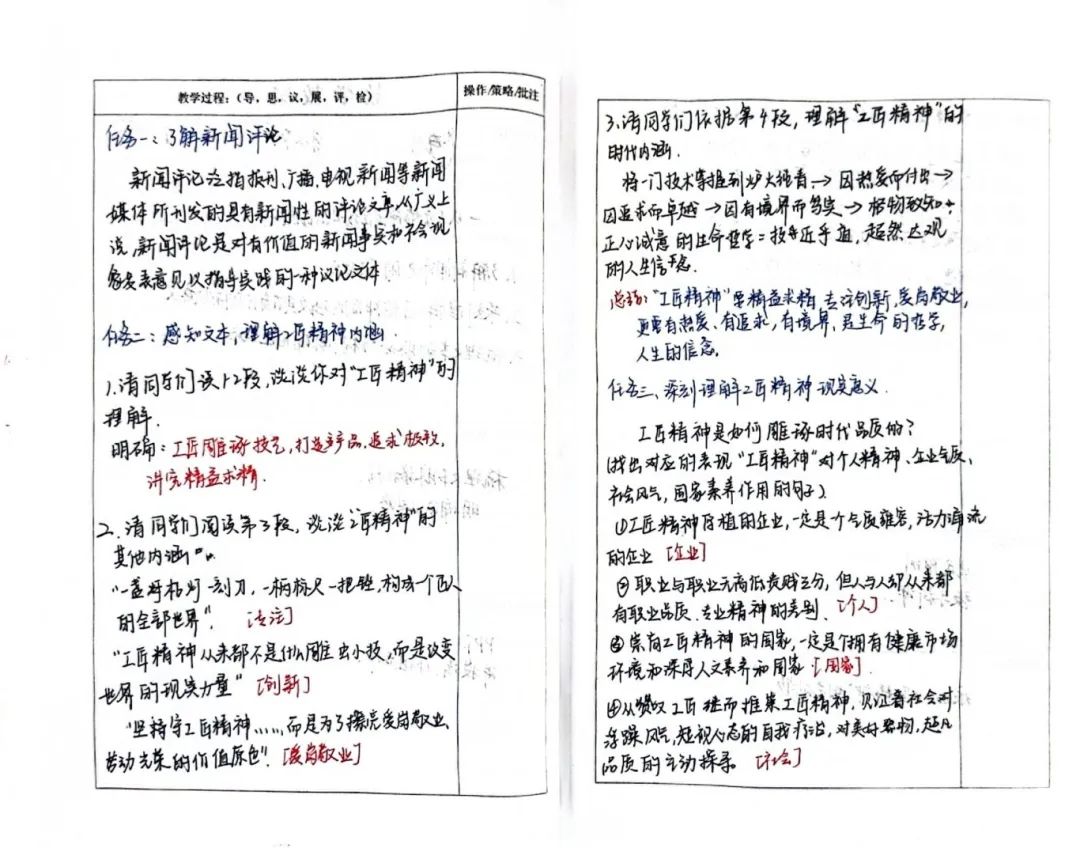 教学过程：（导，思，议，展，评，检）
操作/策略/批注
任务一：了解新闻评论
新闻评论泛指报刊、广播、电视新闻等新闻
媒体所刊发的具有新闻性的评论文章，从广义上
说，新闻评论是对有价值的新闻事实和社会现
象发表意见以指导实践的一种议论文体
任务二：感知文本，理解工匠精神内涵.
1.请同学们读1-2段，谈谈你对“工匠精神”的
理解.
明确：工匠雕琢技艺，打造产品，追求极致，
讲究精益求精.
2.请同学们阅读第3段，谈谈工匠精神”的
其他内涵
“一盏台灯一刻刀，一柄标尺一把锉，构成一个匠人
的全部世界”. [专注]
“工匠精神从来都不是什么雕虫小技，而是改变
世界的现实力量” [创新]
“坚持守工匠精神……而是为了擦亮爱岗敬业、
劳动光荣的价值原色”. [爱岗敬业]
3.请同学们依据第4段，理解“工匠精神”的
时代内涵.
将一门技术掌握到炉火纯青→因热爱而付出→
因追求而卓越→因有境界而笃实→格物致知，
正心诚意的生命哲学=技进乎道，超然达观
的人生信念.
总结：“工匠精神”要精益求精，专注创新，爱岗敬业，
更要有热爱、有追求，有境界，是生命的哲学，
人生的信念.
任务三、深刻理解工匠精神现实意义.
工匠精神是如何雕琢时代品质的？
(找出对应的表现“工匠精神”对个人精神、企业气质、
社会风气，国家素养作用的句子)
①工匠精神厚植的企业，一定是个气质雍容，活力涌流
的企业 [企业]
②职业与职业无高低贵贱之分，但人与人却从来都
有职业品质、专业精神的差别. [个人]
③崇尚工匠精神的国家，一定是个拥有健康市场
环境和深厚人文素养和国家 [国家]
④从赞叹工匠继而推崇工匠精神，见证着社会对
浮躁风气，短视心态的自我疗治，对美好器物，超凡
品质的主动探寻. [社会]